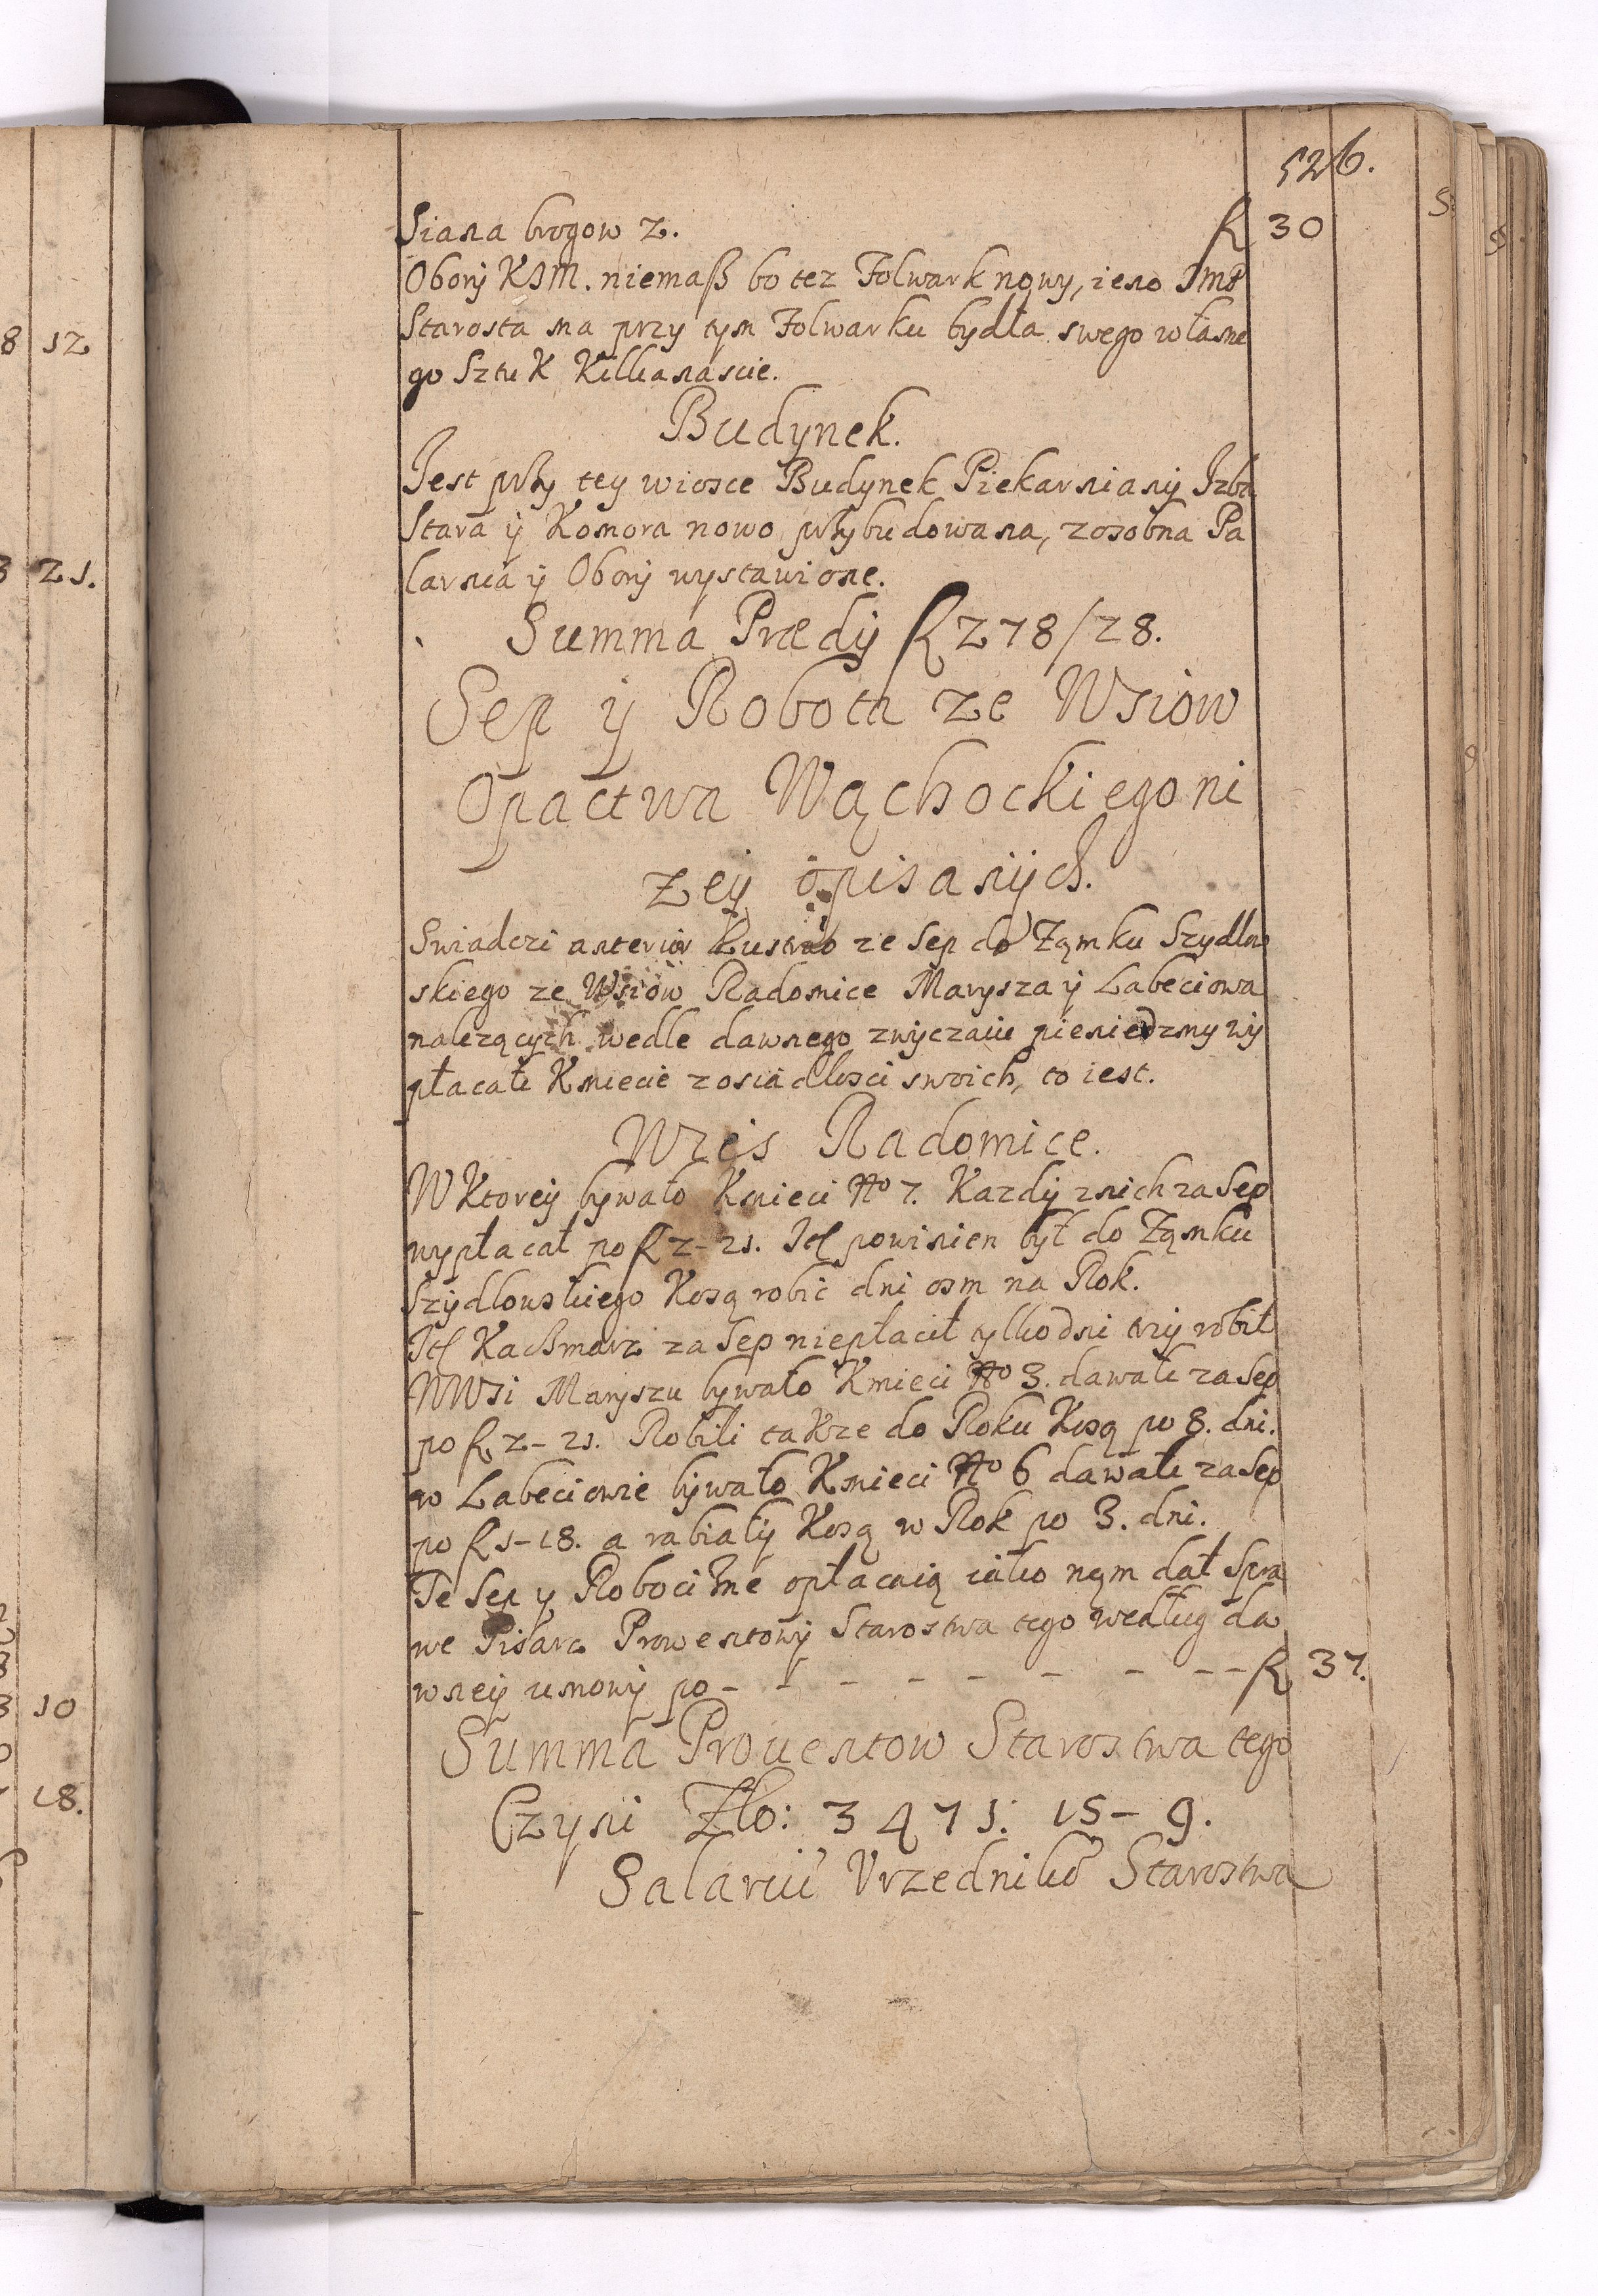 526.
Siana brogow 2. fl 30
Obory KJM. niemaß bo tez Folwark nowy, ieno Jmś
Starosta ma przy tym Folwarku bydła swego własne
go Sztuk Kilkanascie.
Budynek.
Jest przy tey wiosce Budynek Piekarniany Jzba
Stara ÿ Komora nowo przybudowana, zosobna Pa
larnia ÿ Obory wystawione.
Summa Prædÿ fl 278/28.
Sep ÿ Robota ze Wsiow
Opactwa Wąchockiego ni
zeÿ opisanÿch.
Swiadczi anterior Lustrao ze Sep do Zamku Szydłow
skiego ze Wsiow Radomice Marysza ÿ Labeciowa
nalezących wedle dawnego zwÿczaiu pieniedzmy wÿ
płacali Kmiecie zosiadłosci swoich, to iest.
Wzeis Radomice.
W Ktoreÿ bywało Kmieci No 7. Kazdÿ znich za Sep
wypłacał po fl 2-21. Jtl powinien był do Zamku
Szÿdlowskiego Kosą robic dni osm na Rok.
Jtl Kaczmarz za Sep niepłacił tylko dni trzÿ robił
W Wsi Maryszu bywało Kmieci No 3. dawali za Sep
po fl 2-21. Robili takze do Roku Kosą po 8. dni.
w Labeciowie bÿwało Kmieci No 6 dawali za Sep
po fl 1-18. a rabialÿ Kosą w Rok po 3. dni.
Te Sep y Robocizne opłacaią iako nąm dał Spra
we Pisarz Prowentowÿ Starostwa tego według da
wneÿ umowÿ po - - - - - - - - fl 37.
Summa Prouentow Starostwa tego
Czyni Zło: 3471. 15-9.
Salariū Vrzednikō Starostwa
8 12
3 21.
3 10
18.